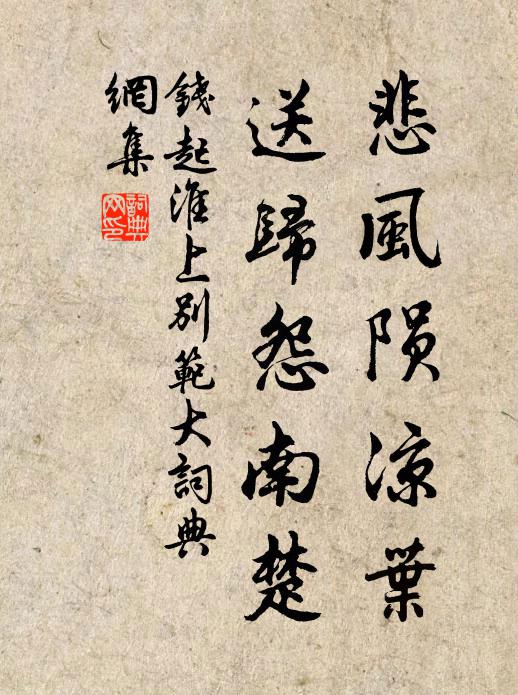 悲風陨涼葉
送歸怨南楚
錢起淮上别範大詞典
網集
詞典網印